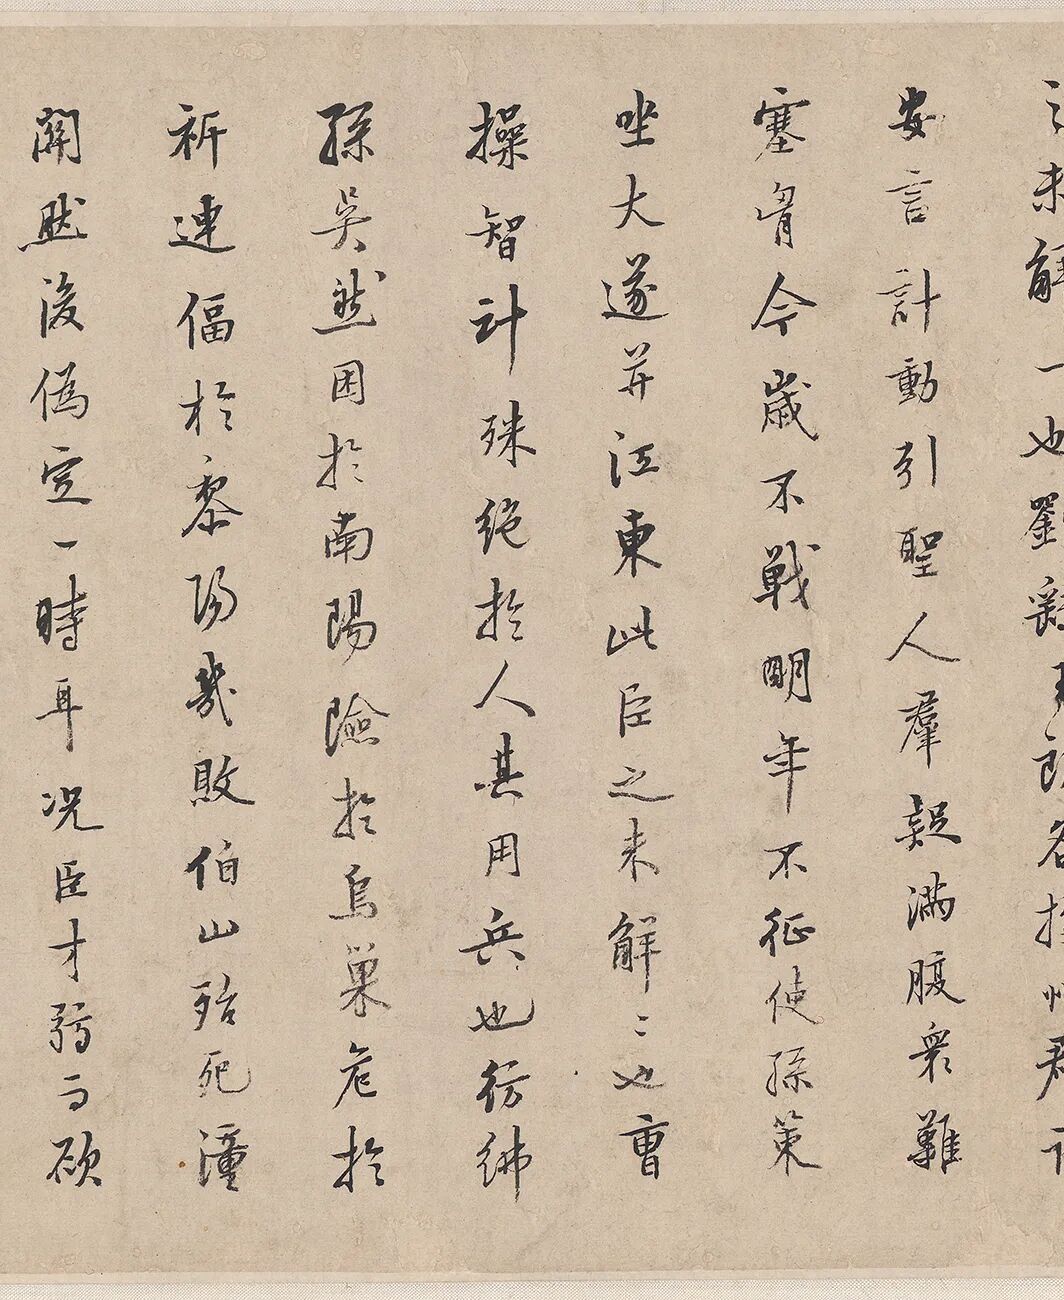 未解一也劉繇王朗各據州郡
安言計動引聖人群疑滿腹衆難
塞胷今歲不戰明年不征使孫策
坐大遂并江東此臣之未解二也曹
操智計殊絶於人其用兵也彷彿
孫吳然困於南陽險於烏巢危於
祈連偪於黎陽幾敗伯山殆死潼
關然後偽定一時耳況臣才弱而欲